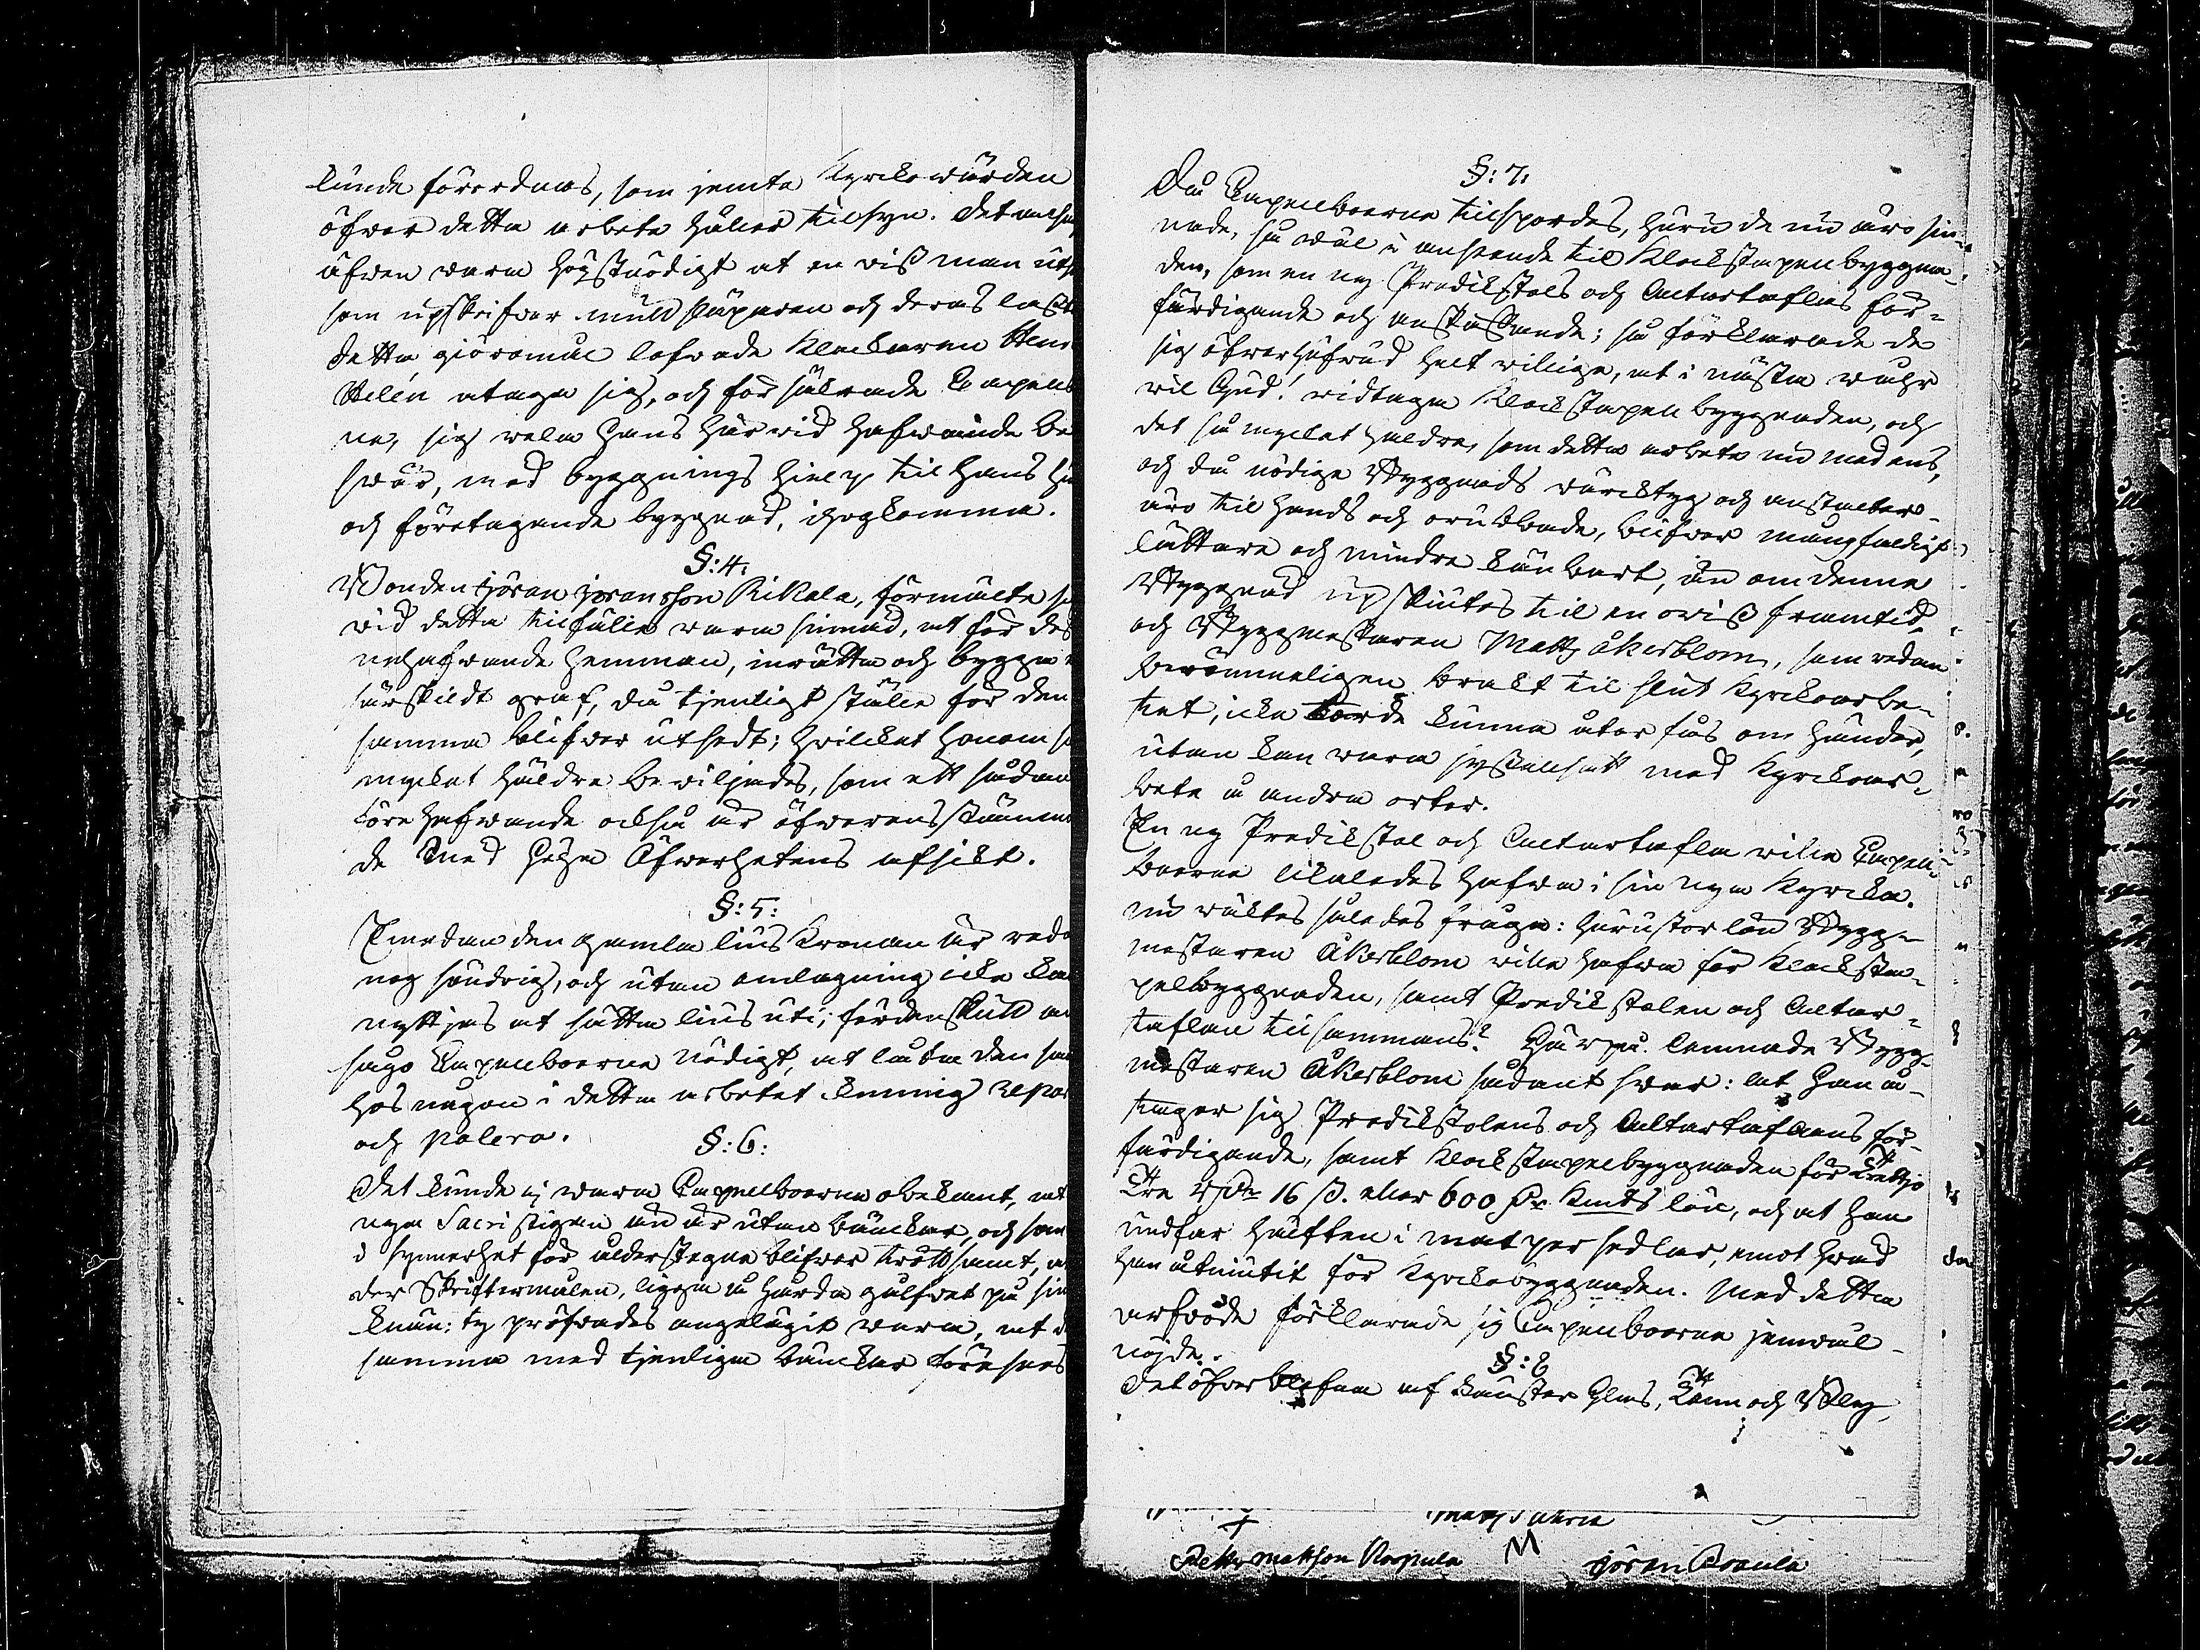 kunde förordnas, som jemte Kyrkowärden
öfwer detta arbete håller tilsyn. Det
äfwen wara högstnödigt at en wiß man
som upskrifwer och deras
detta giöromål lofwade Klockaren
Helén åtaga sig, och försäkrade Capell
ne, sig wela hans härwid hafwande be
swär, med byggnings hielp til hans
och företagande byggnad, ihogkomma.
§: 4:
Bonden Jöran Jöransson Rikala, förmälte
wid detta tilfälle wara sinnad, at för des
nehafwande hemman, inrätta och bygga
särskildt graf, då tjenligt ställe för den
samma blifwer utsedt; hwilket honom
mycket häldre bewiljades, som ett sådant
förehafwande också är öfwerensstämman
de med Höga Öfwerhetens afsikt.
§: 5:
Emedan den gamla liusKronan är
nog söndrig, och utan omlagning icke kan
nyttjas at sätta lius uti; fördenskull
sågo Capellboerne nödigt, at låta den
hos någon i detta arbetet kunnig
och polera.
§: 6:
Det kunde ej wara Capellboerne obekant, at
nya Sacristigan än är utan bänckar, och som
i synnerhet för ålderstegne blifwer trött samt,
der Skriftermålen, liggia å hårda gålfwet på sin
knän: ty pröfwades angelägit wara, at
samma med tjenliga bänckar förses
§: 7:
Då Capellboerne tilspordes, huru de nu äro sin-
nade, så wäl i anseende til Klockstapelbyggna-
den, som en ny Predikstols och Altartaflas för-
färdigande och anskaffande; så förklarade de
sig öfwerhufwud helt willige, at i nästa wåhr
wil Gud! widtaga Klockstapelbyggnaden, och
det så mycket heldre, som detta arbete nu medens,
och då nödige Byggnads wärcktyg och anstalter
äro til hands och orubbade, blifwer mångfaldigt
lättare och mindre känbart, än om denne
Byggnad upskiutes til en owiß framtid,
och Byggmästaren Matts Åkerblom, som redan
berömmeligen brakt til slut Kyrkoarbe-
tet, icke torde kunna åter fås om händer,
utan kan wara sysselsatt med Kyrkoar-
bete å andra orter.
En ny Predikstol och Altartafla wille Capell-
boerne likaledes hafwa i sin nya Kyrka.
Nu wäktes således fråga: huru stor lön Bygg-
mästaren Åkerblom wille hafwa för Klocksta-
pelbyggnaden, samt Predikstolen och Altar-
taflan tilsammans? Härpå lemnade Bygg-
mästaren Åkerblom sådant swar: at han å-
tager sig Predikstolens och Altartaflans för-
färdigande, samt Klockstapelbyggnaden för Trettjo
Tre 16 ß. eller 600 lön, och at han
undfår hälften i mat persedlar, emot hwad
han åtniutit för Kyrkobyggnaden. Med detta
arfwode förklarade sig Capellboerne jemwäl
nöjde.
§: 8
Det öfwerblefne af Fenster Glas, Tenn och Bly,
Matts
M
Mattson Jöran